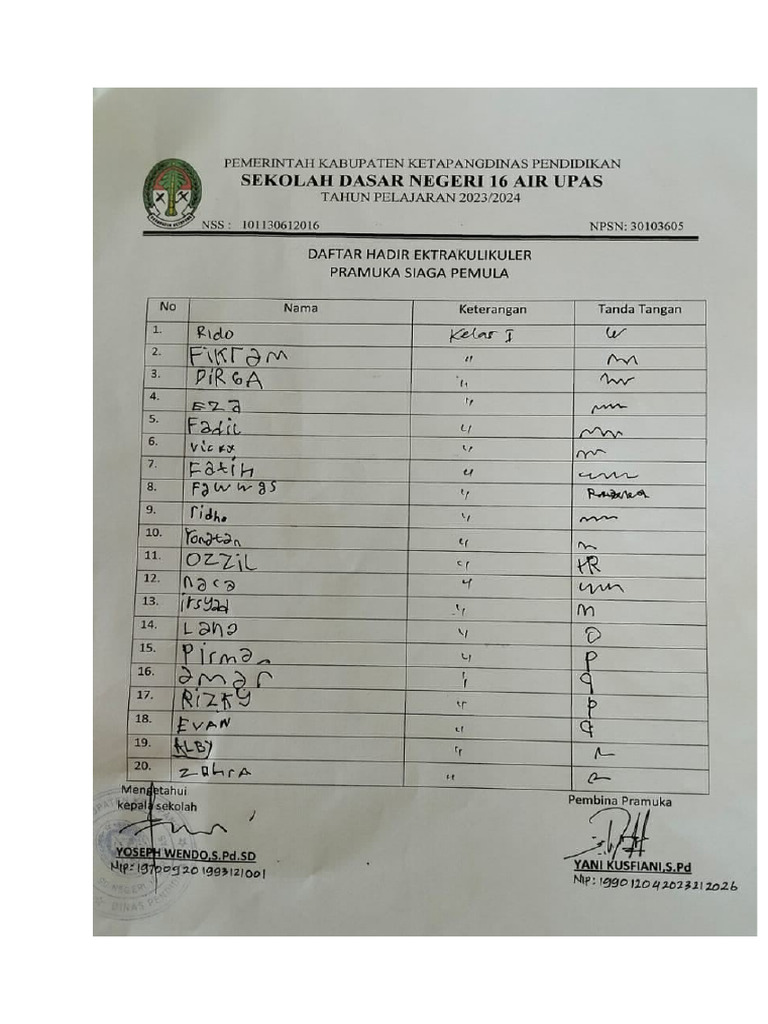 PEMERINTAH KABUPATEN KETAPANGDINAS PENDIDIKAN
SEKOLAH DASAR NEGERI 16 AIR UPAS
TAHUN PELAJARAN 2023/2024
NSS : 101130612016 NPSN: 30103605
DAFTAR HADIR EKTRAKULIKULER
PRAMUKA SIAGA PEMULA
No Nama Keterangan Tanda Tangan
1. Rido Kelas I
2. FIKram "
3. DiRGA "
4. EZa "
5. Fadil "
6. Vicky "
7. Fatih "
8. Fawwas "
9. ridho "
10. Yonatan "
11. OZZIL "
12. naca "
13. irsyad "
14. Lana "
15. Pirman "
16. amar "
17. RIZKY "
18. EVAN "
19. ALBY "
20. ZahrA "
Mengetahui
kepala sekolah Pembina Pramuka
YOSEPH WENDO,S.Pd.SD YANI KUSFIANI,S.Pd
Nip: 197009201993121001 Nip: 199012042023212026